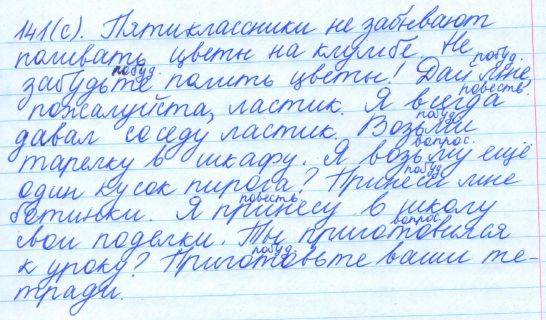 141(с). Пятиклассники не забывают
поливать цветы на клумбе. Не
побуд.
забудьте полить цветы! Дай мне,
побуд.
пожалуйста, ластик. Я всегда
повеств.
давал соседу ластик. Возьми
побуд.
тарелку в шкафу. Я возьму ещё
вопрос.
один кусок пирога? Принеси мне
побуд.
ботинки. Я принесу в школу
повеств.
свои поделки. Ты приготовился
вопрос.
к уроку? Приготовьте ваши те-
побуд.
тради.